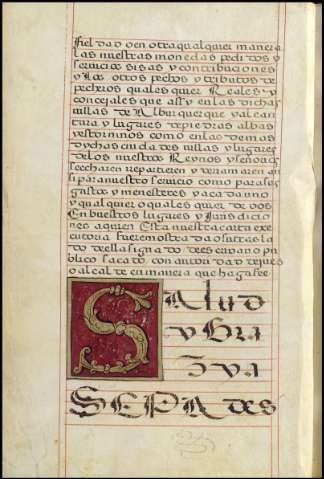 fieldad o en otra qualquier manera
las nuestras monedas pechos y
servicios sisas y contribuciones
y Los otros pechos y tributos de
pecheros quales quier Reales y
concejales que assy en las dichas
villas de Alburquerque y alcan
tara y lugares de piedras albas
y estorninos como en las demas
dychas ciudades villas y lugares
de los nuestros Reynos y señorios
se echaren repartieren y derramaren an
si para nuestro servicio como para los
gastos y menesteres y a cada uno
y qualquier o quales quier de vos
En vuestros lugares y Jurisdicio
nes a quien Esta nuestra carta exe
cutoria fuere mostrada o su trasla
do della signado de escrivano pu
blico sacado con autoridad de juez
o alcalde en manera que haga fee
SALUD
y Gra
zya
SEPAdes